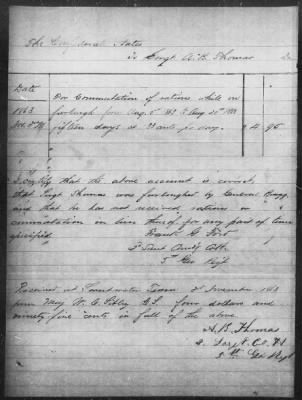 The Confederate States
To Sergt A. B. Thomas Dr
Date
For Commutation of rations while on
1863
furlough from Aug. 5th 1863 to Aug. 20th 1863
fifteen days at 33 cents pr day. $ 4 95
I certify that the above account is correct
that Sergt Thomas was furloughed by General Bragg
and that he has not received rations or
commutation in lieu thereof for any part of time
specified.
Frank G.
Lieut Comdg Co H
5th Geo Regt
Received at Sweetwater Tenn 2 November 1863
from Maj W. C. Sibley Q.M. four dollars and
ninety five cents in full of the above
A. B. Thomas
2. Sergt. Co. H
5th Geo Regt